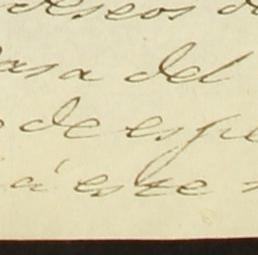 deseos d
asa del
e de espe
á este